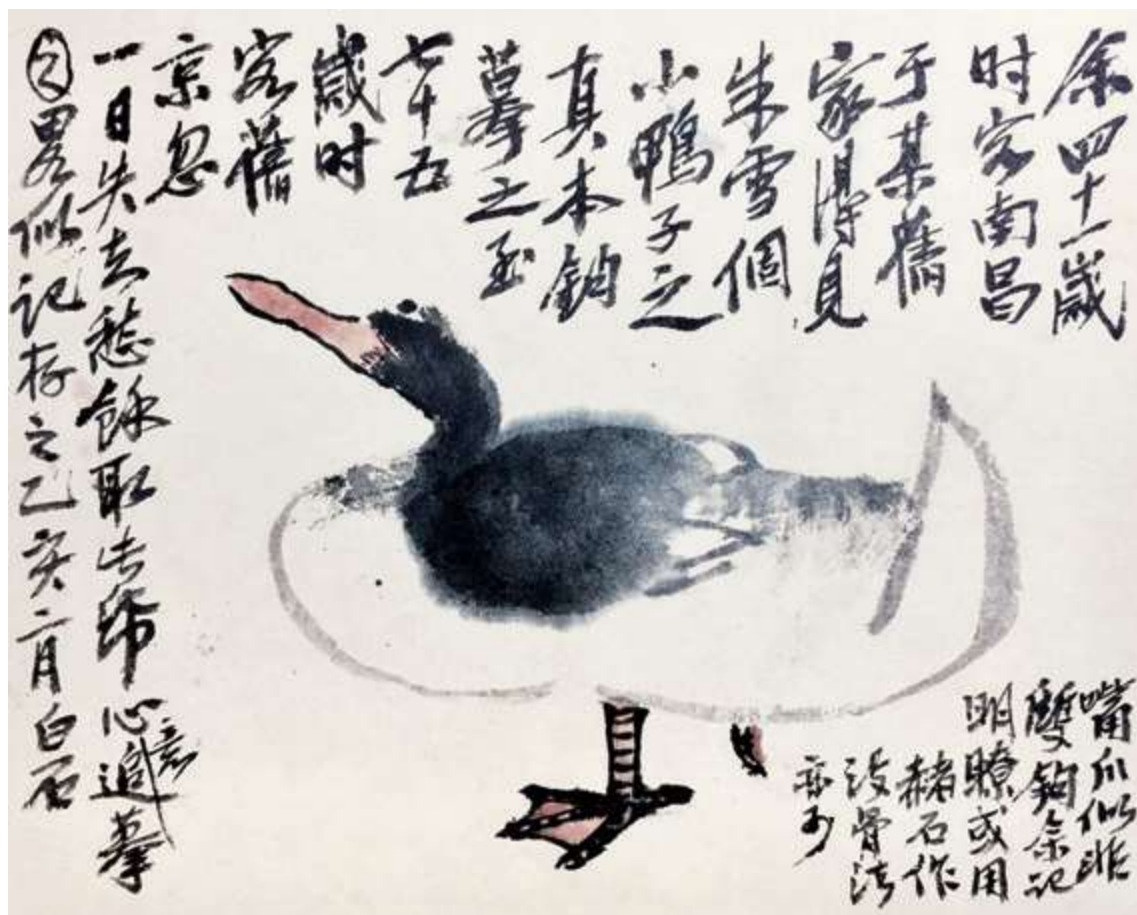 余四十一歲
时客南昌
于某舊
家得見
朱雪個
小鴨子之
真本鈎
摹之至
七十五
歲时
客舊
京忽
一日失去愁餘取此紙心意追摹
略似记存之乙亥二月白石
嘴爪似非
雙鈎余记
明瞭或用
赭石作
没骨法
亦可